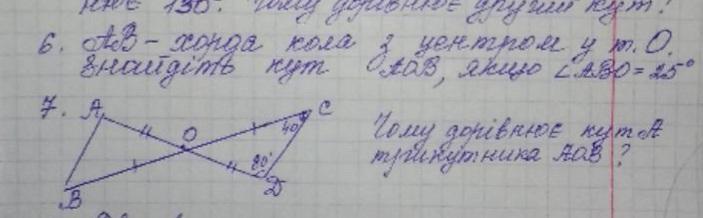 нює 130°. Чому дорівнює другий кут?
6. AB - хорда кола з центром у т. О.
Знайдіть кут AOB, якщо ∠ABO = 25°
7. A O C 40° 80° D B
Чому дорівнює кут A
трикутника AOB?